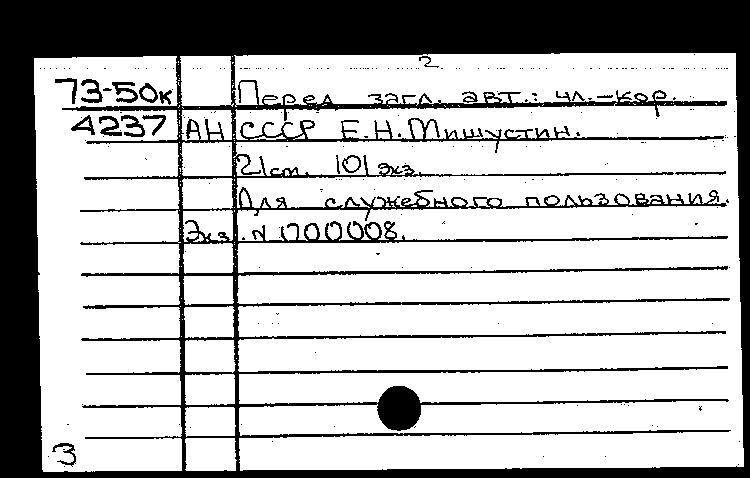 2
73-50к Перед загл. авт.: чл.-кор.
4237 АН СССР Е.Н.Мишустин.
21см. 101экз.
Для служебного пользования.
Экз. N 000008.
3